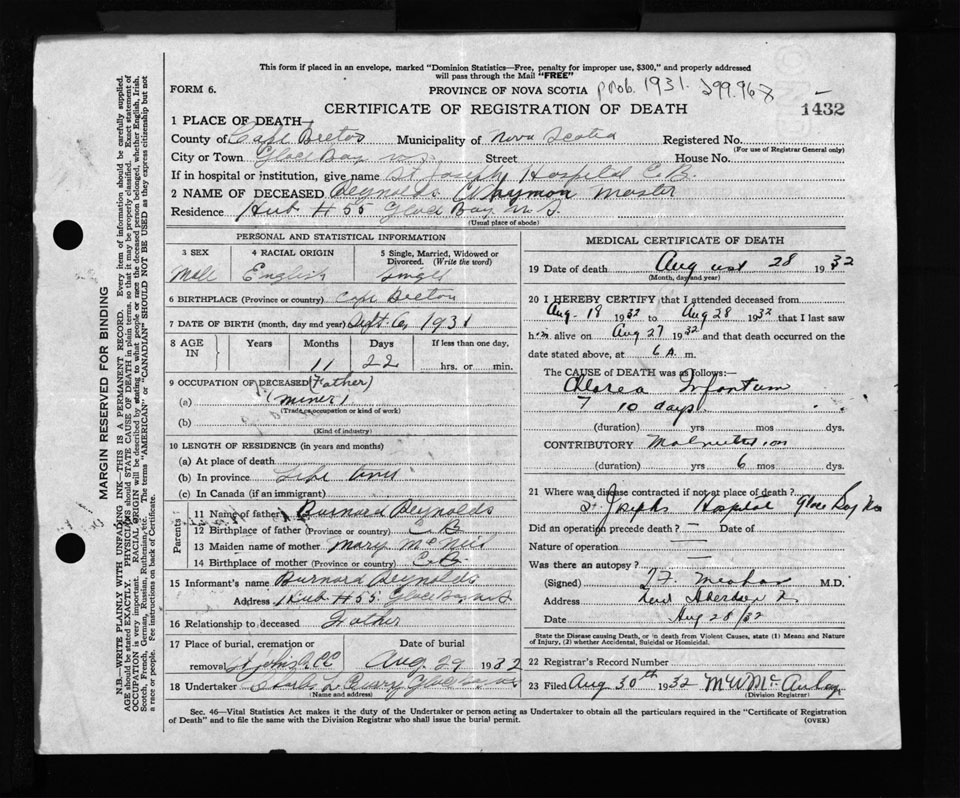 This form if placed in an envelope, marked "Dominion Statistics—Free, penalty for improper use, $300," and properly addressed
will pass through the Mail "FREE"
FORM 6.
PROVINCE OF NOVA SCOTIA prob. 1931. 299.967
CERTIFICATE OF REGISTRATION OF DEATH 1432
1 PLACE OF DEATH—
County of Cape Breton Municipality of Nova Scotia Registered No.
(For use of Registrar General only)
City or Town Glace Bay N.S. Street House No.
If in hospital or institution, give name St Joseph Hospital C.B.
2 NAME OF DECEASED Reynolds Wymon Master
Residence Hub. # 55 Glace Bay N.S.
(Usual place of abode)
PERSONAL AND STATISTICAL INFORMATION
3 SEX 4 RACIAL ORIGIN 5 Single, Married, Widowed or Divorced. (Write the word)
Male English Single
6 BIRTHPLACE (Province or country) Cape Breton
7 DATE OF BIRTH (month, day and year) Sept. 6, 1931
8 AGE IN Years Months Days If less than one day,
11 22 hrs. or min.
9 OCCUPATION OF DECEASED (Father)
(a) (miner)
(Trade, occupation or kind of work)
(b)
(Kind of industry)
10 LENGTH OF RESIDENCE (in years and months)
(a) At place of death
(b) In province Life time
(c) In Canada (if an immigrant)
Parents
11 Name of father Burnard Reynolds
12 Birthplace of father (Province or country) C. B
13 Maiden name of mother Mary McNeil
14 Birthplace of mother (Province or country) C. B.
15 Informant's name Burnard Reynolds
Address Hub # 55 Glace Bay N.S
16 Relationship to deceased Father
17 Place of burial, cremation or Date of burial
removal Aug. 29 1932
18 Undertaker Curry Glace Bay
(Name and address)
MEDICAL CERTIFICATE OF DEATH
19 Date of death August 28 1932
(Month, day and year)
20 I HEREBY CERTIFY that I attended deceased from
Aug. 18 1932 to Aug 28 1932 that I last saw
h im alive on Aug 27 1932 and that death occurred on the
date stated above, at 6 A. m.
The CAUSE OF DEATH was as follows:—
Infantum
7 10 days
(duration) yrs mos dys.
CONTRIBUTORY Malnutrition
(duration) yrs 6 mos dys.
21 Where was disease contracted if not at place of death?
St Josephs Hospital Glace Bay
Did an operation precede death — Date of
Nature of operation —
Was there an autopsy? —
(Signed) M.D.
Address New Aberdeen
Date Aug 28/32
State the Disease causing Death, or in death from Violent Causes, state (1) Means and Nature
of Injury, (2) whether Accidental, Suicidal or Homicidal.
22 Registrar's Record Number
23 Filed Aug 30th 1932
(Division Registrar)
Sec. 46—Vital Statistics Act makes it the duty of the Undertaker or person acting as Undertaker to obtain all the particulars required in the "Certificate of Registration
of Death" and to file the same with the Division Registrar who shall issue the burial permit.
(OVER)
MARGIN RESERVED FOR BINDING
N.B.—WRITE PLAINLY WITH UNFADING INK—THIS IS A PERMANENT RECORD. Every item of information should be carefully supplied.
AGE should be stated EXACTLY. PHYSICIANS should STATE CAUSE OF DEATH in plain terms, so that it may be properly classified. Exact statement of
OCCUPATION is very important. RACIAL ORIGIN will be described by stating to what people or race the deceased person belonged, whether English, Irish,
Scotch, French, German, Russian, Ruthenian, etc. The terms "AMERICAN" or "CANADIAN" SHOULD NOT BE USED as they express citizenship but not
a race or people. See instructions on back of Certificate.